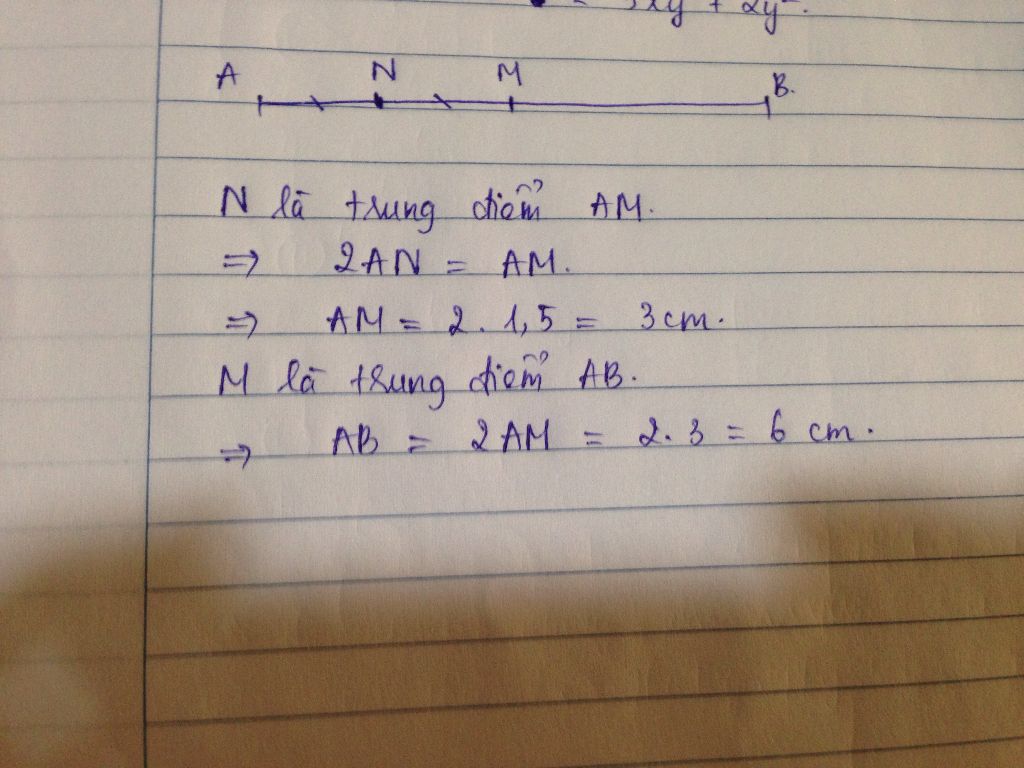 = 3xy + 2y².
A N M B.
N là trung điểm AM.
=> 2AN = AM.
=> AM = 2. 1,5 = 3cm.
M là trung điểm AB.
=> AB = 2AM = 2.3 = 6 cm.